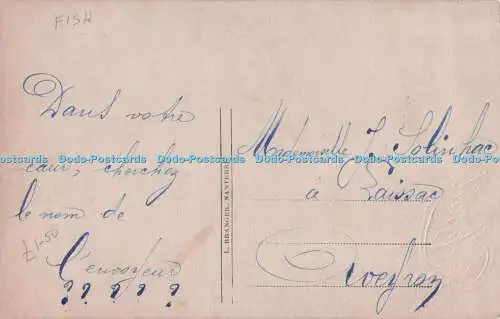 FISH
Dans votre
cœur, cherchez
le nom de
l'envoyeur
? ? ? ? ?
£1-50
L. BRANGER, NANTERRE
Mademoiselle J. Solinhac
à
Laissac
Aveyron
Dodo-Postcards Dodo-Postcards Dodo-Postcards Dodo-Postcards Dodo-Postcards